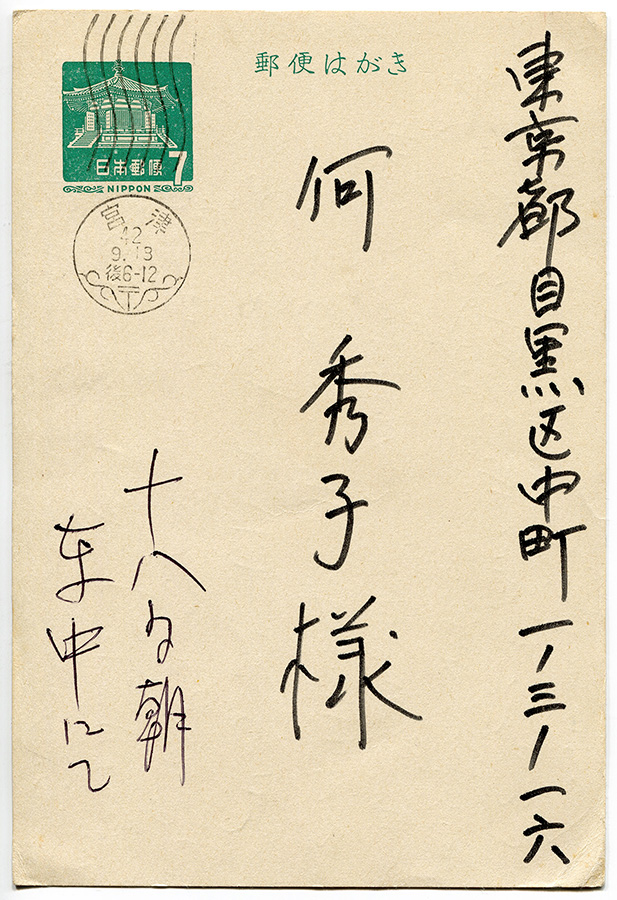 東京都目黒区中町一ノ三ノ一六
郵便はがき
何秀子様
日本郵便 7
NIPPON
宮津
42
9.13
後6-12
〒
十八日朝
車中にて